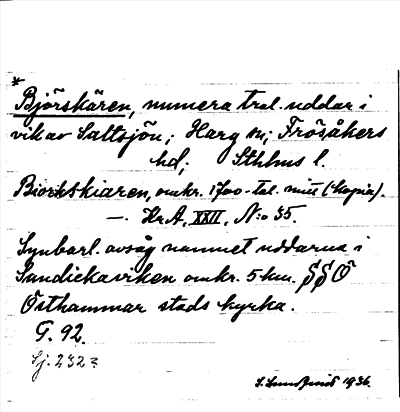 *
Björskären, numera tral. uddar i
vik av Saltsjön; Harg sn; Frösåkers
hd; Sthlms l.
Biorkskiaren, omkr. 1700-tal. mitt (kopia).
— Kr A, XXII, N:o 35.
Synbarl. avsåg namnet uddarna i
Sandikaviken omkr. 5 km. SSO
Östhammar stads kyrka.
G. 92.
Sj. 232
S. Sundqvist 1936.